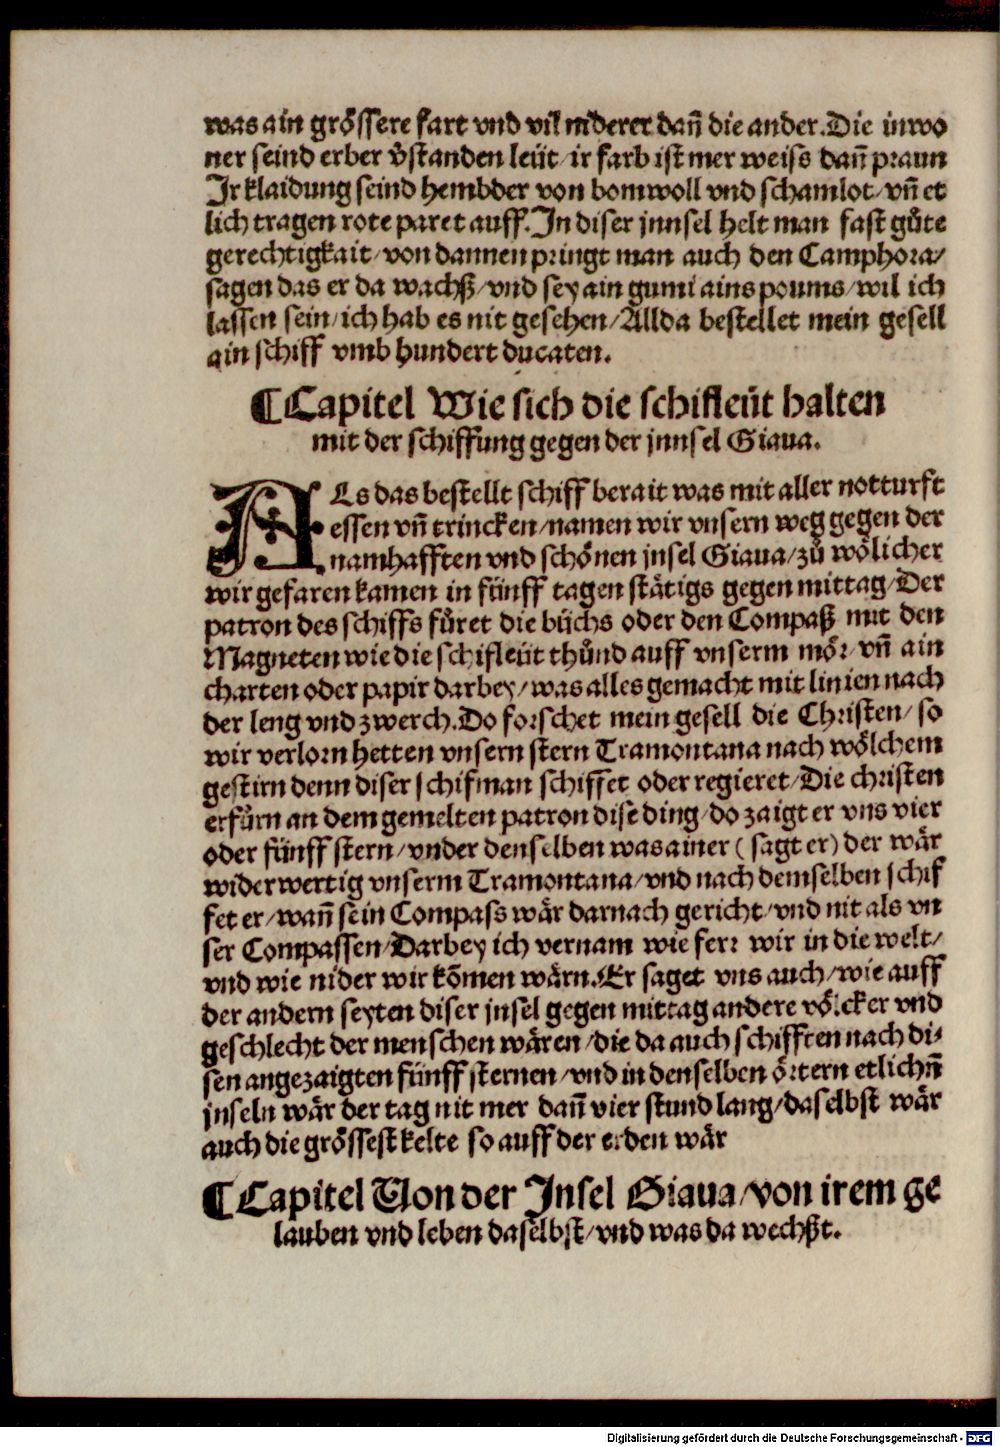 was ain grössere fart vnd vil niderer dañ die ander. Die inwo
ner seind erber v̊standen leüt / ir farb ist mer weiss dañ praun
Ir klaidung seind hembder von bomwoll vnd schamlot / vñ et
lich tragen rote paret auff. In diser jnnsel helt man fast gůte
gerechtigkait / von dannen pringt man auch den Camphora /
sagen das er da wachß / vnd sey ain gumi ains poums / wil ich
lassen sein / ich hab es nit gesehen / Allda bestellet mein gesell
ain schiff vmb hundert ducaten.
¶ Capitel Wie sich die schifleüt halten
mit der schiffung gegen der jnnsel Giaua.
ALs das bestellt schiff berait was mit aller notturft
essen vñ trincken / namen wir vnsern weg gegen der
namhafften vnd schönen jnsel Giaua / zů wölicher
wir gefaren kamen in fünff tagen stätigs gegen mittag / Der
patron des schiffs fůret die büchs oder den Compaß mit den
Magneten wie die schifleüt thůnd auff vnserm mör / vñ ain
charten oder papir darbey / was alles gemacht mit linien nach
der leng vnd zwerch. Do forschet mein gesell die Christen / so
wir verlorn hetten vnsern stern Tramontana nach wölchem
gestirn denn diser schifman schiffet oder regieret / Die christen
erfůrn an dem gemelten patron dise ding / do zaigt er vns vier
oder fünff stern / vnder denselben was ainer ( sagt er ) der wär
widerwertig vnserm Tramontana / vnd nach demselben schif
fet er / wañ sein Compass wär darnach gericht / vnd nit als vn
ser Compassen / Darbey ich vernam wie ferr wir in die welt /
vnd wie nider wir kōmen wärn. Er saget vns auch / wie auff
der andern seyten diser jnsel gegen mittag andere völcker vnd
geschlecht der menschen wären / die da auch schifften nach di-
sen angezaigten fünff sternen / vnd in denselben örtern etlichñ
jnseln wär der tag nit mer dañ vier stund lang / daselbst wär
auch die grössest kelte so auff der erden wär
¶ Capitel Von der Insel Giaua / von irem ge
lauben vnd leben daselbst / vnd was da wechßt.
Digitalisierung gefördert durch die Deutsche Forschungsgemeinschaft - DFG